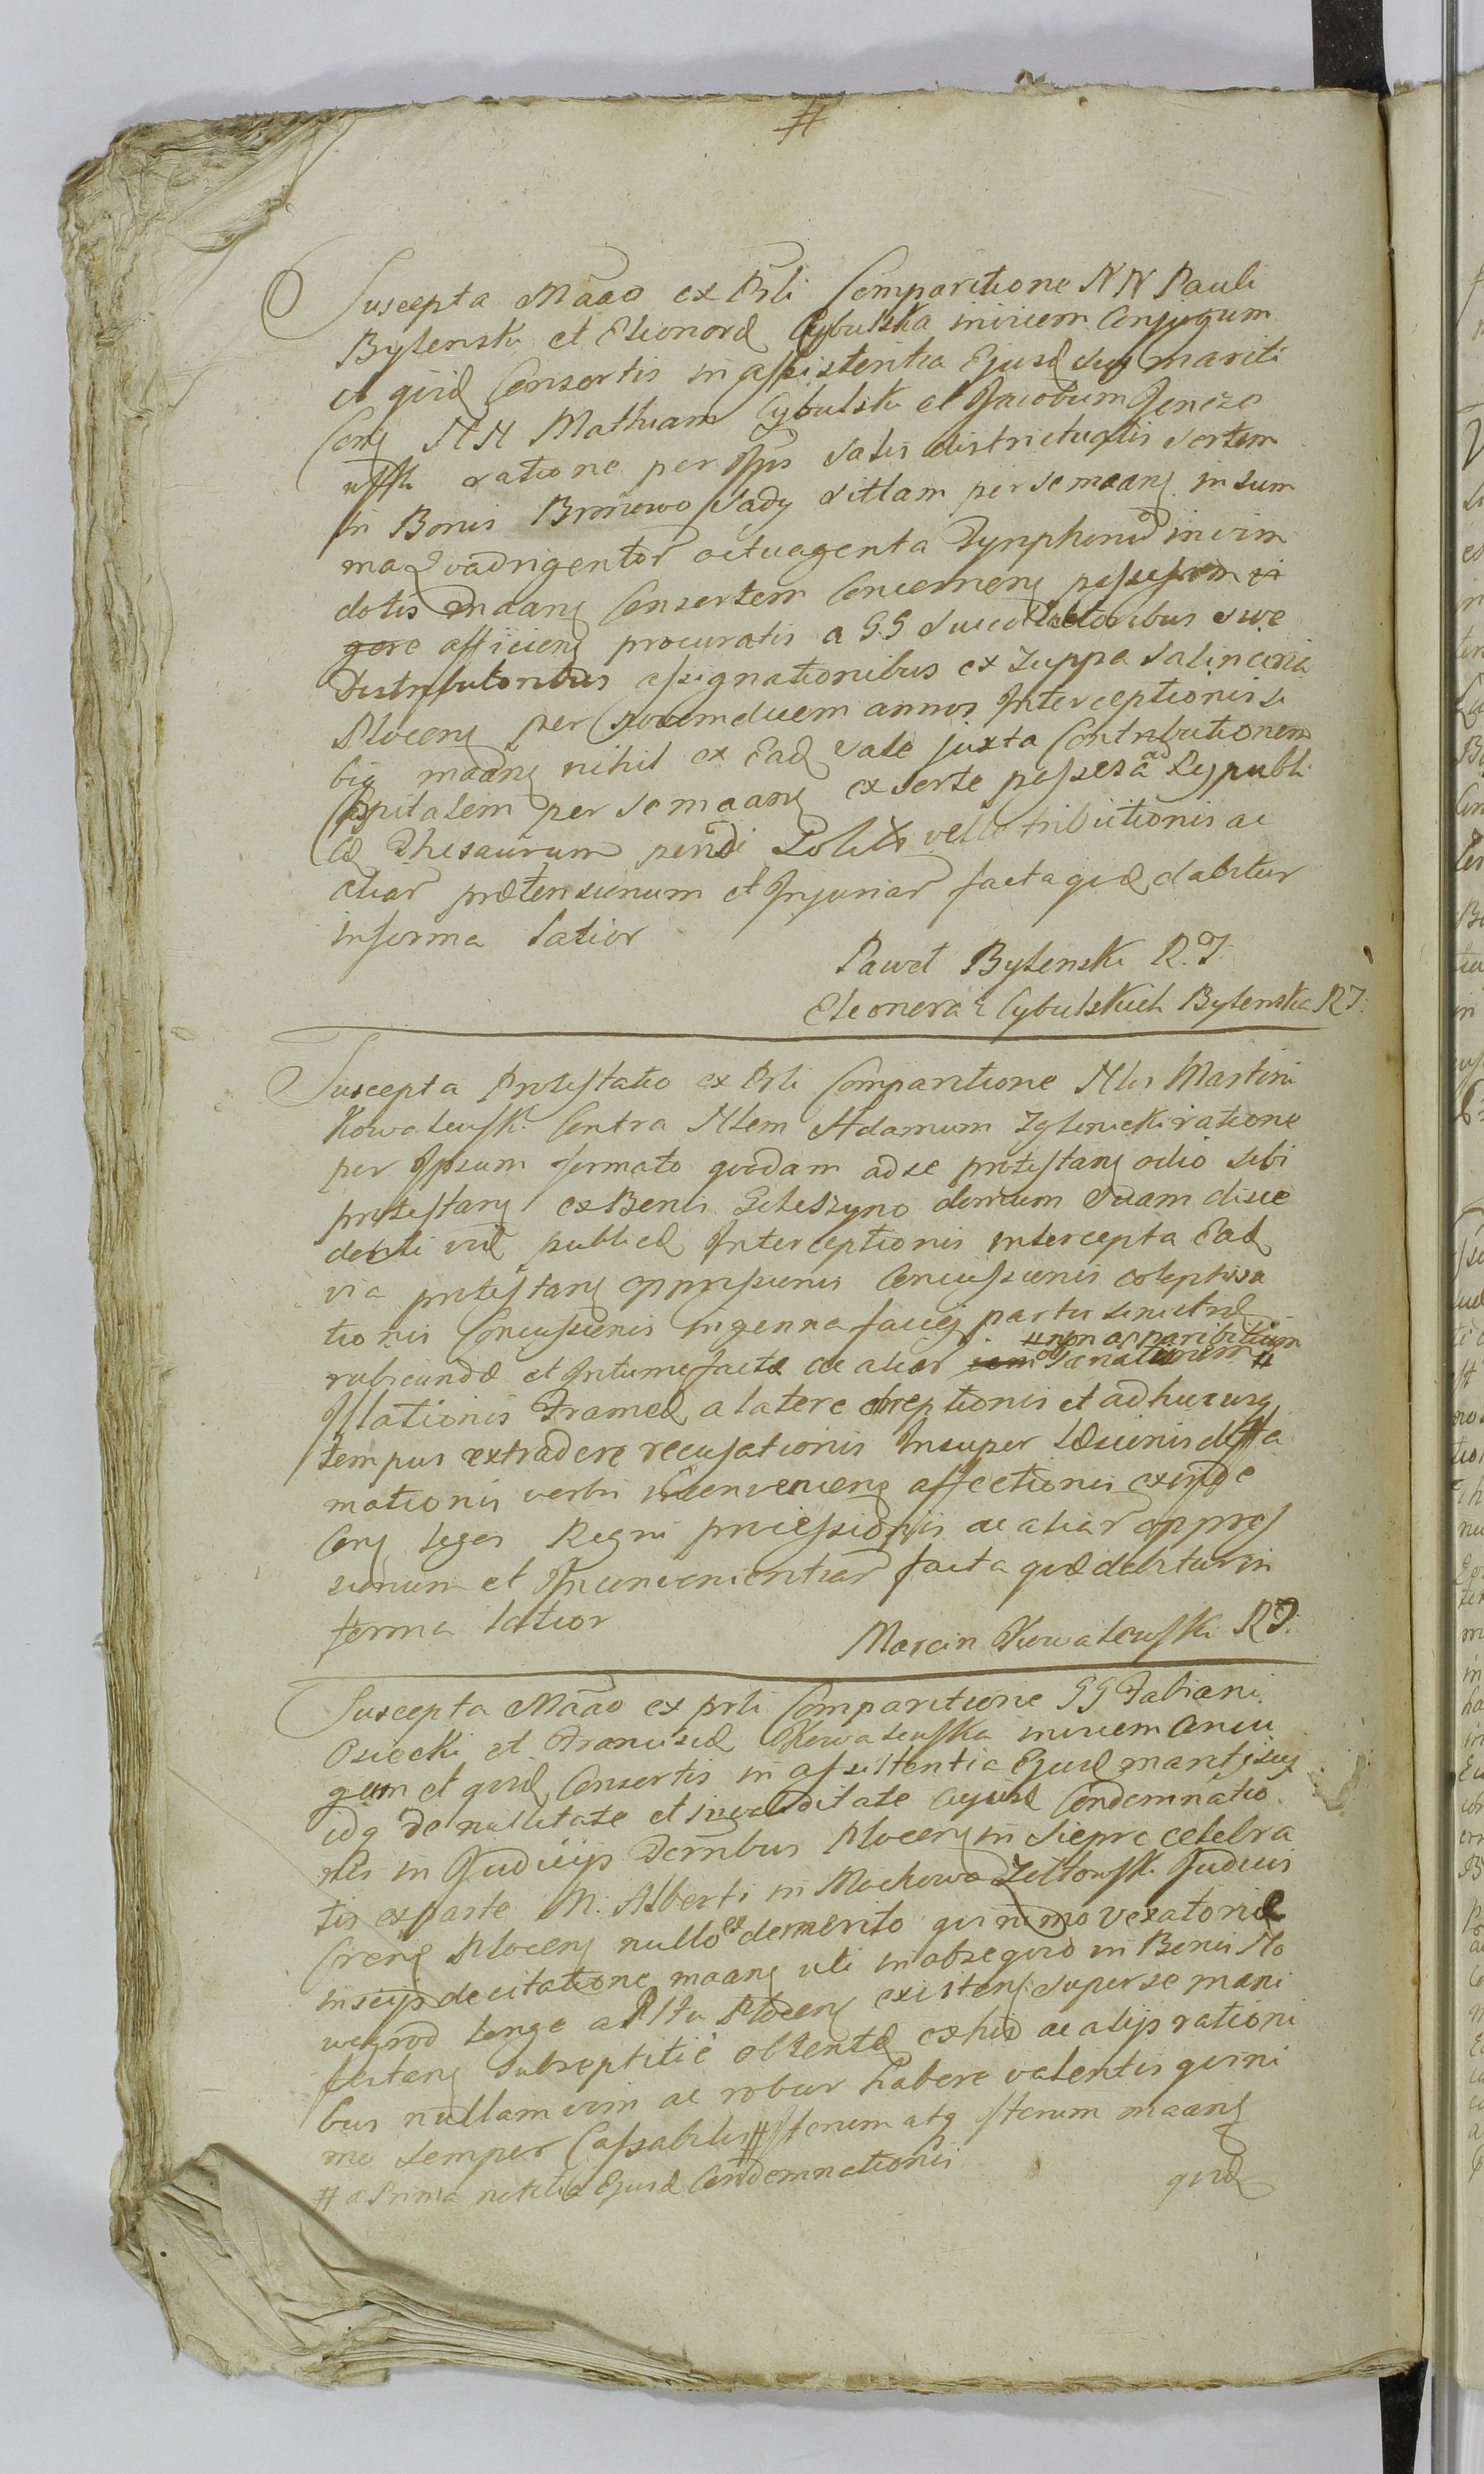 #
Suscepta Maao ex Prli Comparitione NN Pauli
Bylenski et Elionorae Cybulska invicem Conjugum
et qvid Consortis in assistentia Ejusd sui mariti
Cong NN Mathiam Cybulski et Jacobum
ratione per Ipsos salis districtualis sortem
in Bonis Bronowo Sady sittam per se maang in sum
ma Qvadrigentor octuagenta Tynphonu in vim
dotis maang Consortem Concerneng possessam
gore afficieng procuratis a GG Succollectoribus sive
Distributoribus assignationibus ex Zuppa Salincaria
Ploceng per novemdecem annos Interceptionis si
biq maang nihil ex Ead Sale juxta Contributionem
Cpitalem per se maang ex sorte possesa ad Reypubli
cae Thesaurum pendi tributionis ac
aliar praetensionum et Injuriar facta qvae dabitur
in forma latior
Paweł Bylenski R.J.
Eleonora z Cybulskich Bylenska RJ.
Suscepta Protestatio ex Prli Comparitione Nlis Martini
Kowalewski Contra Nlem Adamum Zglenicki ratione
per Ipsum formato qvodam ad se protestang odio sibi
protestang ex Bonis Goleszyno domum suam disce
denti viae publicae Interceptionis intercepta Ead
via protestang oppressionis Concussionis colaphisa
tionis Concussionis in genna faciej partis sinistrae
# non acparibilium
rubicundae et Intumefactae ac aliar #
Illationis Frameae a latere ereptionis et adhucusq
tempus extradere recusationis Insuper Laesionis diffa
mationis verbis inconvenieng affectionis exinde
Cong leges Regni processionis ac aliar oppres
sionum et Inconvenientiar facta qvae dabitur in
forma latior
Marcin Kowalewski RJ.
Suscepta Maao ex prli Comparitione GG Fabiani
Osiecki et Franciscae Kowalewska invicem Conju
gum et qvid Consortis in assistentia Ejusd mariti sui
idq de nullitate et invaliditate Cujusd Condemnatio
nis in Judicijs Terribus Ploceng in Sieprc celebra
tis ex parte M. Alberti in Mochowo Zołtowski Judicis
Creng Ploceng nullo demerito qvinimo vexatoriae
inscijs de citatione maang uti in obseqvio in Bonis No
wegrod longe a Pltu Ploceng existeng super se mani
festang subreptitie obtentae ex his ac alijs rationi
bus nullam vim ac robur habere valentis qvini
mo semper Cassabilis # Iterum atq Iterum maang
# a Prima notitia Ejusd Condemnationis
qvid